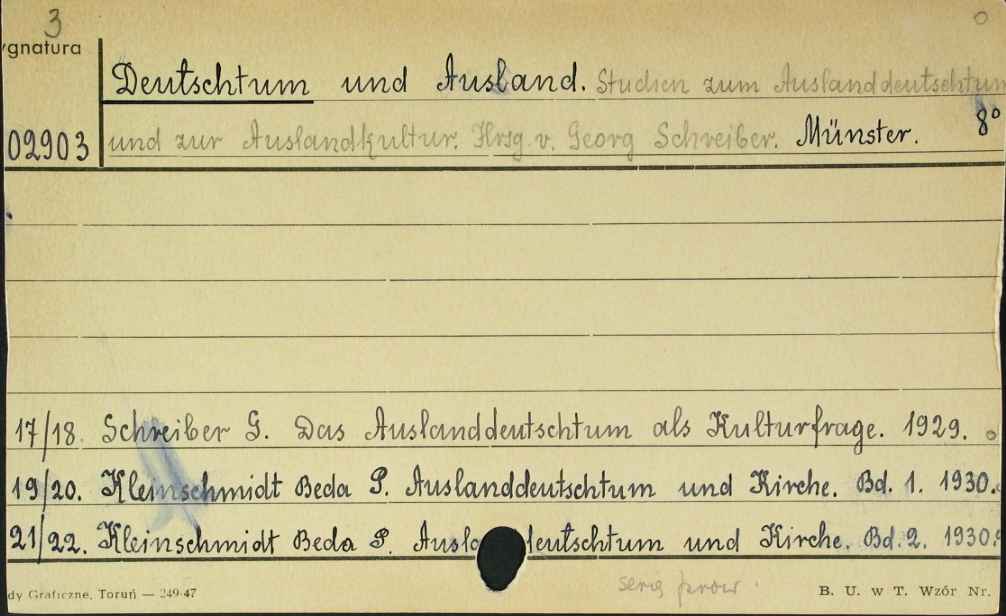 3
ygnatura
Deutschtum und Ausland. Studien zum Auslanddeutschtum
02903 und zur Auslandkultur. Hrsg. v. Georg Schreiber. Münster. 8°
17/18. Schreiber G. Das Auslanddeutschtum als Kulturfrage. 1929.
19/20. Kleinschmidt Beda P. Auslanddeutschtum und Kirche. Bd. 1. 1930.
21/22. Kleinschmidt Beda P. Ausla deutschtum und Kirche. Bd. 2. 1930.
dy Graficzne, Toruń — 249-47 B. U. w T. Wzór Nr.